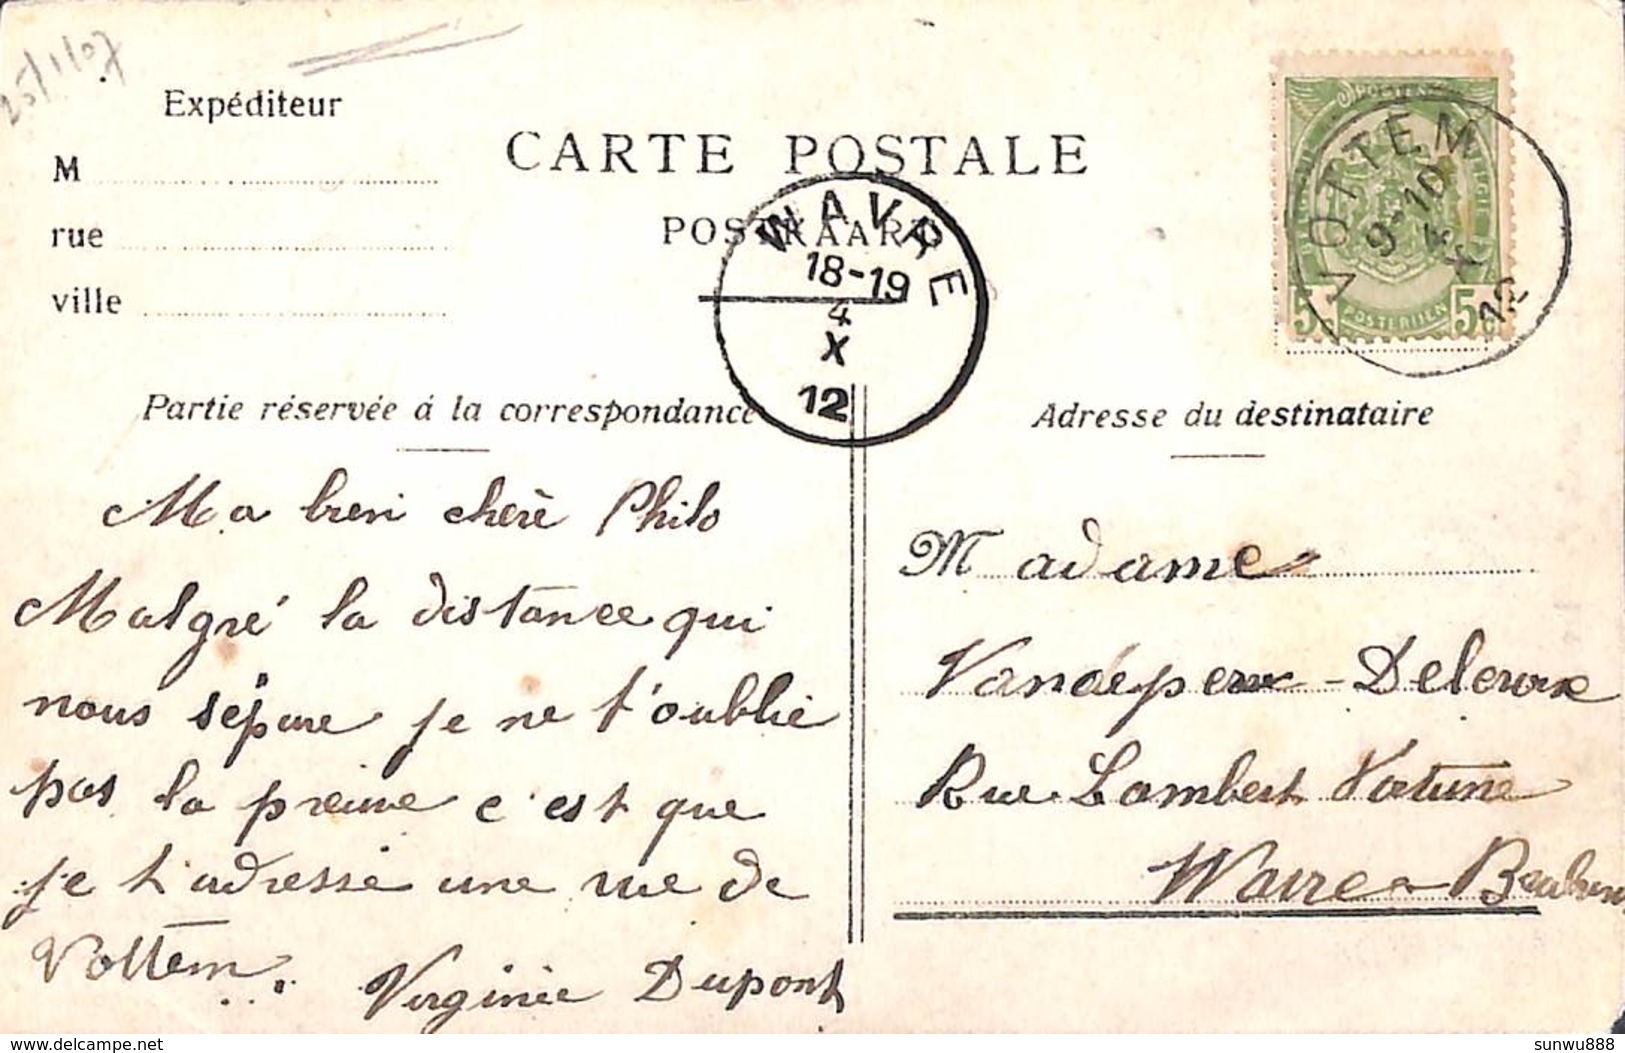 25/1/07
Expéditeur
M
rue
ville
CARTE POSTALE
POSTKAART
WAVRE
18-19
4
X
12
VOTTEM
9-10
4
X
12
POSTERIJEN
5c 5c
Partie réservée á la correspondance
Adresse du destinataire
Ma bien chère Philo
Malgré la distance qui
nous sépare je ne t'oublie
pas la preuve c'est que
je t'adresse une vue de
Vottem.
Virginie Dupont
Madame
- Delcroix
Rue Lambert Fortune
Wavre Brabant
delcampe.net
sunwu888